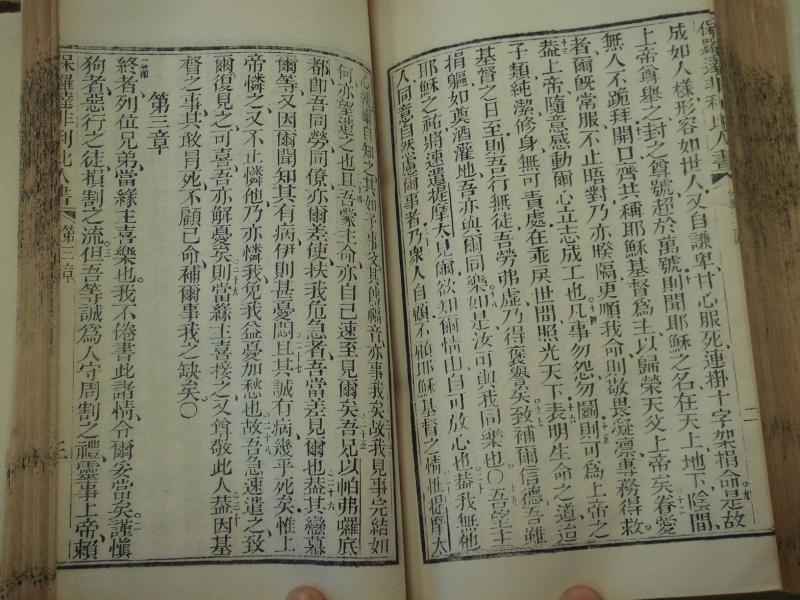 成如人樣形容如世人又自謙卑甘心服死連掛十字架捐命是故
上帝尊舉之封之尊號超於萬號則聞耶穌之名在天上地下陰間
無人不跪拜開口齊共稱耶穌基督為主以歸榮天父上帝矣眷愛
者爾既常服不止晤對乃亦暌隔更順我命則敬畏凝凜專務得救
蓋上帝隨意感動爾心立志成工也凡事勿怨勿鬬則可為上帝之
子類純潔修身無可責處在乖戾世間照光天下表明生命之道迨
基督之日至則吾行無徒吾勞弗虛乃得褒譽矣致補爾信德吾雖
捐軀如奠酒灌地吾亦與爾同樂如是汝可與我同樂也〇吾望主
耶穌之祐將速遣提摩太見爾欲知爾情由自可放心也蓋我無他
人同意自然慮爾事者乃眾人自顧不顧耶穌基督之情惟提摩太
心練爾自知之其如子事父共傳福音亦事我矣故我見事完結如
何亦望遣之也且吾蒙主命亦自己速至見爾矣吾足以帕弗囉底
都卽吾同勞同僚亦爾差使扶我危急者吾當差見爾也蓋其戀慕
爾等又因爾聞知其有病伊則甚憂悶且其誠有病幾乎死矣惟上
帝憐之又不止憐他乃亦憐我免我益憂加愁也故吾急速遣之致
爾復見之可喜吾亦解憂矣則當緣主喜接之又尊敬此人蓋因基
督之事其敢冒死不顧己命補爾事我之缺矣〇
第三章
終者列位兄弟當緣主喜樂也我不倦書此諸情令爾安當矣謹慎
狗者惡行之徒損割之流但吾等誠為人守周割之禮靈事上帝賴
第三章
三